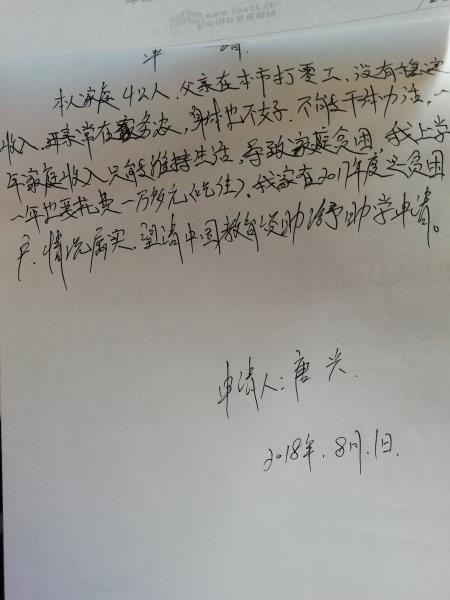 申请
本人家庭4口人，父亲在本市打零工，没有稳定
收入，母亲常在家务农，身体也不好，不能干体力活，一
年家庭收入只能维持生活，导致家庭贫困，我上学
一年也要花费一万多元（吃住），我家在2017年度之贫困
户，情况属实，望请中国教育资助给予助学申请。
申请人：唐兴
2018年.8月.1日.